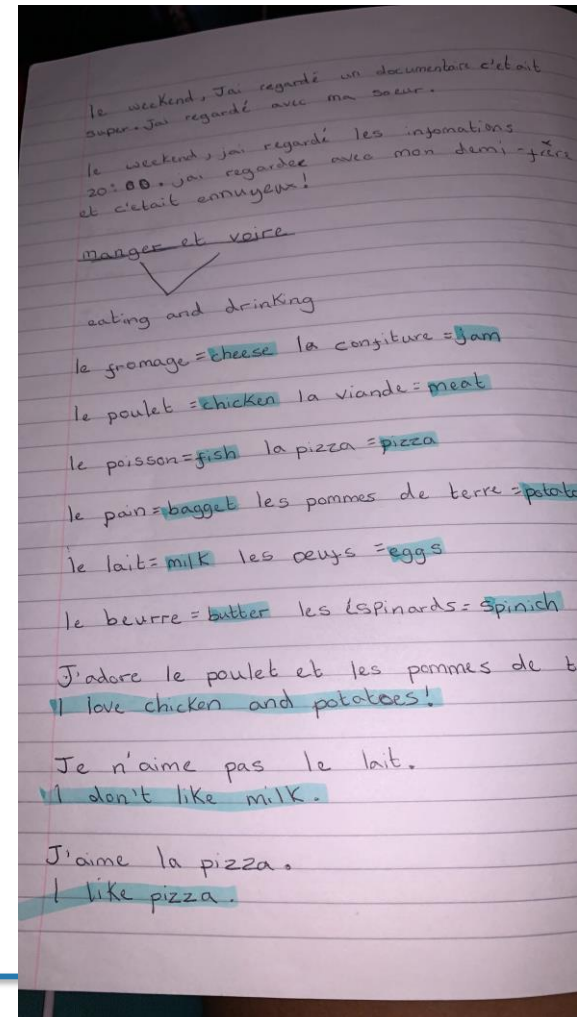 le weekend, Jai regardé un documentaire c'etait
super. Jai regardé avec ma soeur.
le weekend, jai regardé les infomations
20:00. jai regardee avec mon demi-frère
et c'etait ennuyeux!
manger et voire
eating and drinking
le fromage = cheese la confiture = jam
le poulet = chicken la viande = meat
le poisson = fish la pizza = pizza
le pain = bagget les pommes de terre = potato
le lait = milk les oeufs = eggs
le beurre = butter les éspinards = spinich
J'adore le poulet et les pommes de t
I love chicken and potatoes!
Je n'aime pas le lait.
I don't like milk.
J'aime la pizza.
I like pizza.